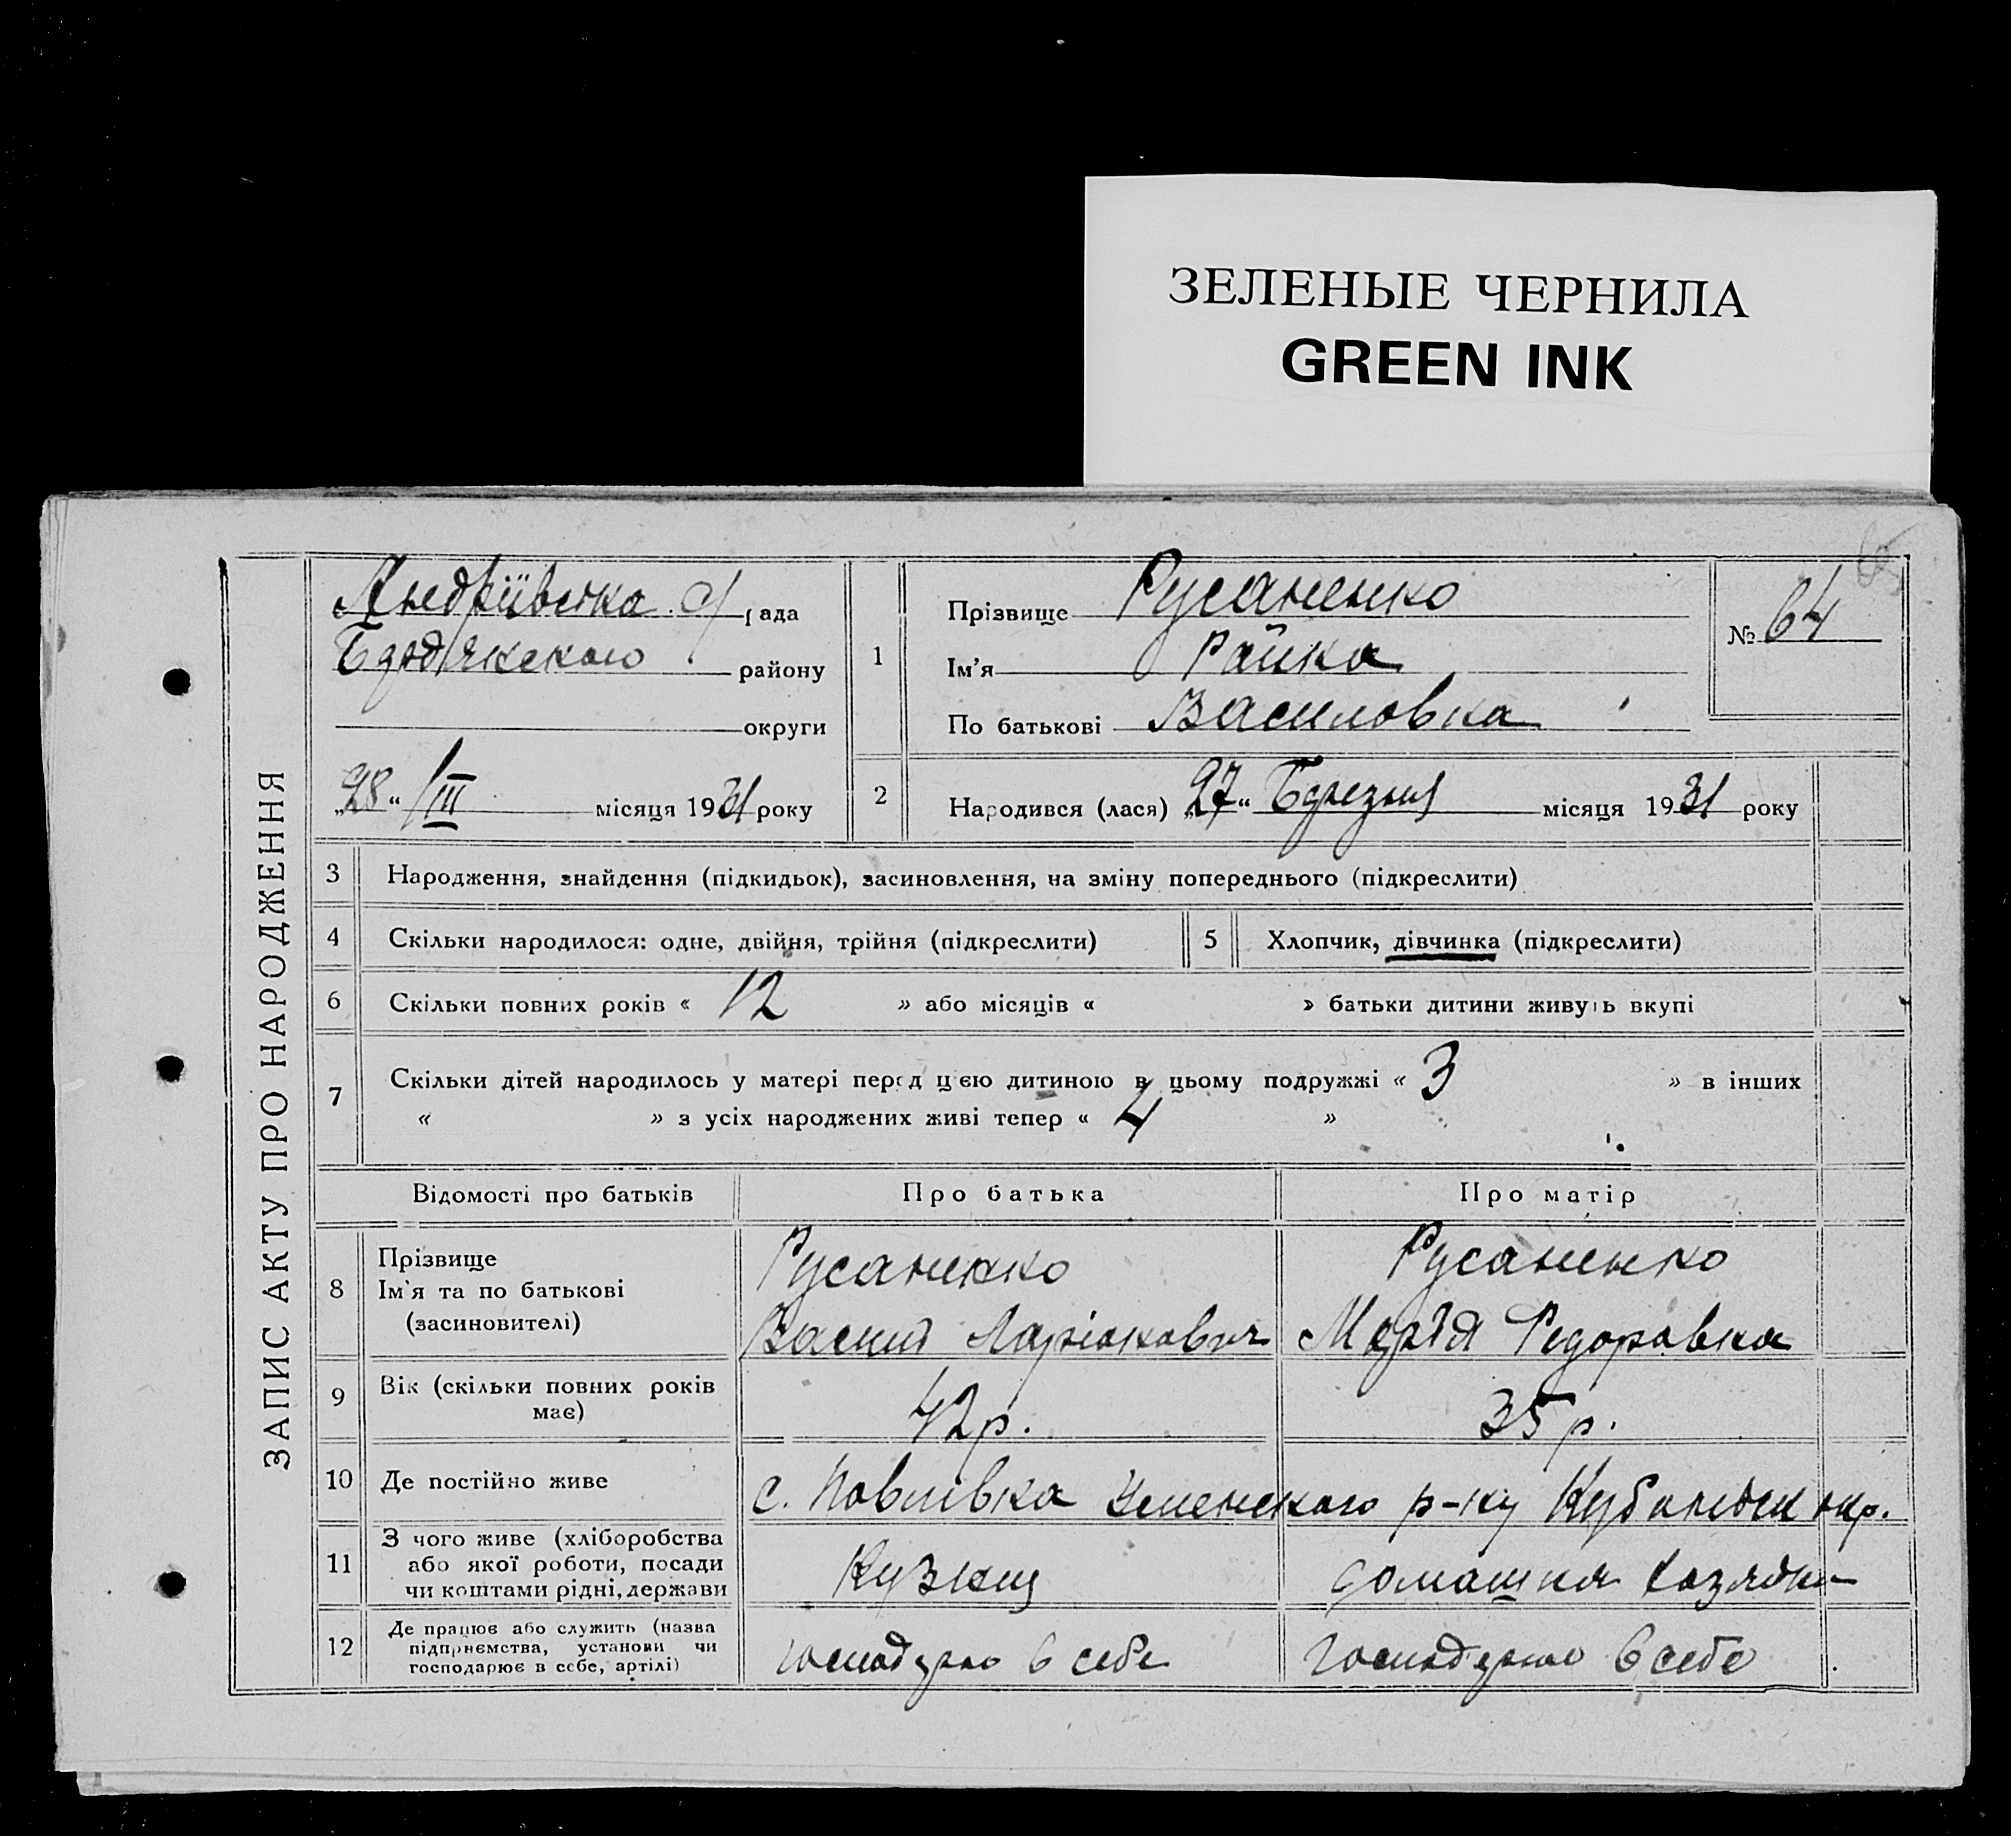 ЗЕЛЕНЫЕ ЧЕРНИЛА
GREEN INK
ЗАПИС АКТУ ПРО НАРОДЖЕННЯ
Андріївська с/рада
району
округи
„28“ III місяця 1931 року
1
Прізвище Русаненко
Ім’я Райка
По батькові Василовка
№ 64
2
Народився (лася) „27“ Березня місяця 1931 року
3 Народження, знайдення (підкидьок), засиновлення, на зміну попереднього (підкреслити)
4 Скільки народилося: одне, двійня, трійня (підкреслити)
5 Хлопчик, дівчинка (підкреслити)
6 Скільки повних років « 12 » або місяців « » батьки дитини живуть вкупі
7 Скільки дітей народилось у матері перед цією дитиною в цьому подружжі « 3 » в інших
« » з усіх народжених живі тепер « 4 »
Відомості про батьків Про батька Про матір
8 Прізвище
Ім’я та по батькові
(засиновителі)
Русаненко
Василь Ларіонович
Русаненко
Марія Федоровка
9 Вік (скільки повних років
має)
42 р.
35 р.
10 Де постійно живе
с. Павлівка р-ну окр.
11 З чого живе (хліборобства
або якої роботи, посади
чи коштами рідні, держави
Кузнец
домашня хазяйка
12 Де працює або служить (назва
підприємства, установи чи
господарює в себе, артілі)
господарює в себе
господарює в себе